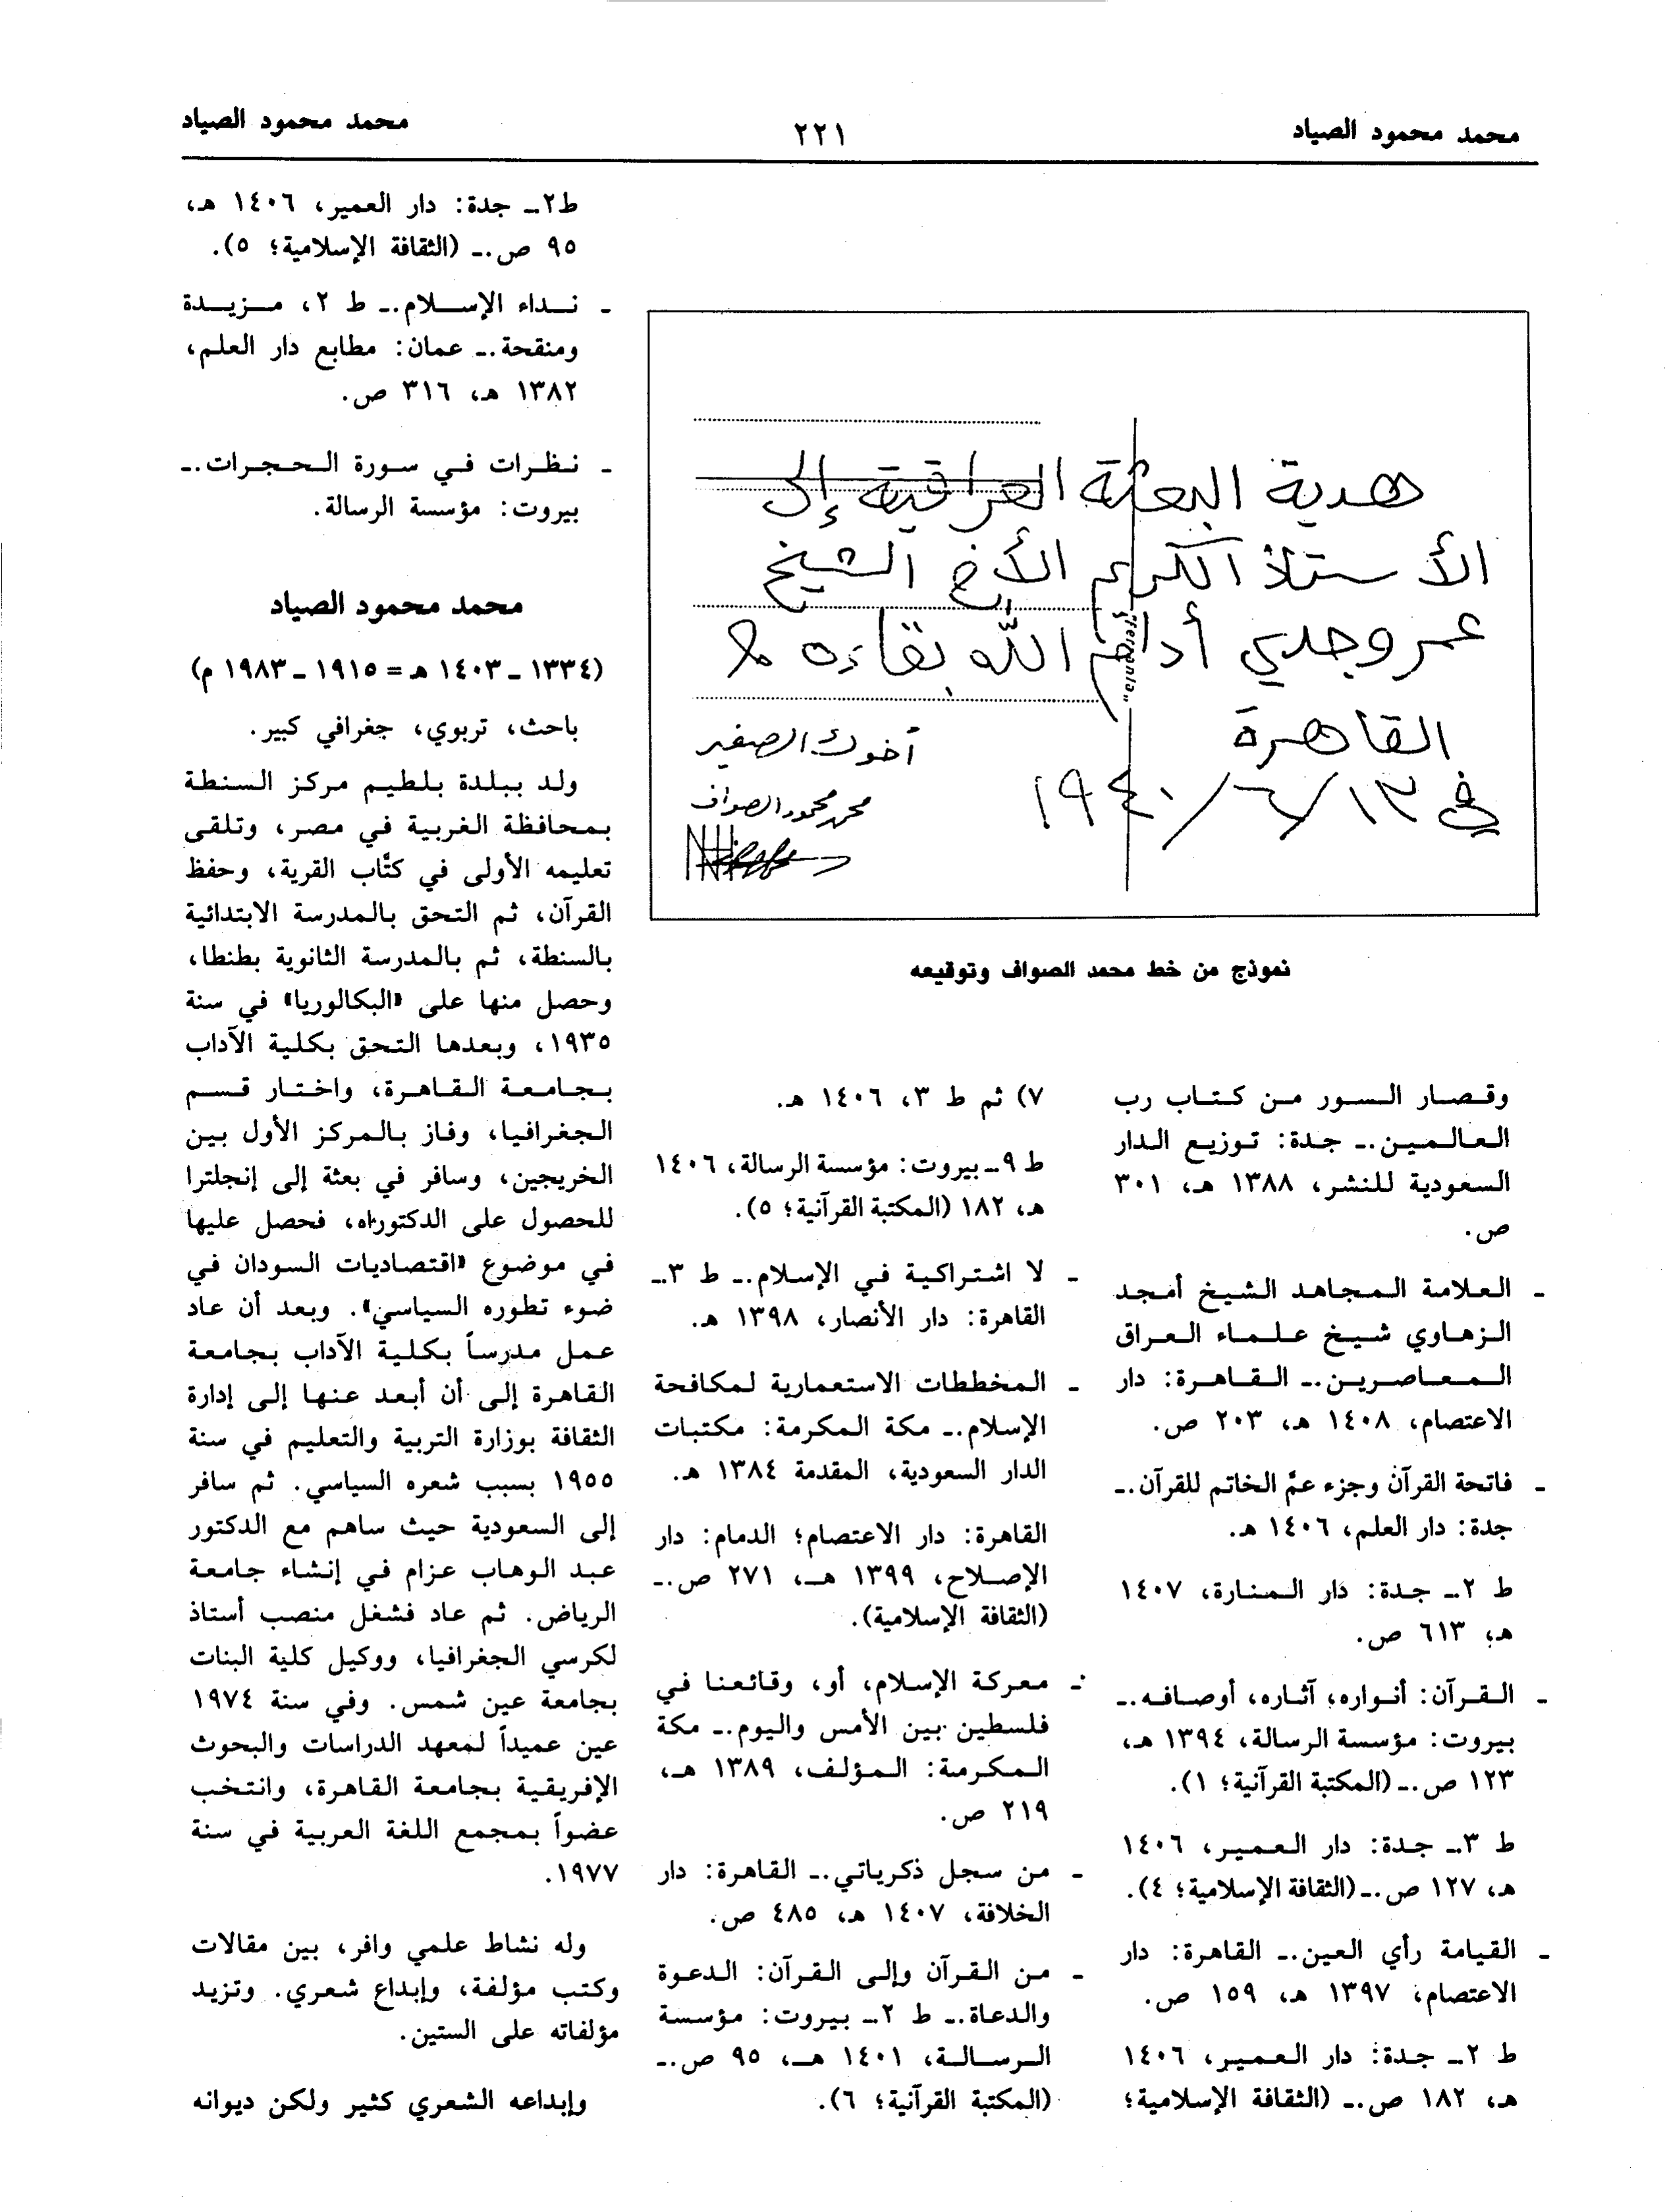 محمد محمود الصياد
٢٢١
محمد محمود الصياد
هدية البعثة العراقية إلى
الأستاذ الكريم الأخ الشيخ
عمر وجدي أدام الله بقاءه
القاهرة
في ١٣/٦/١٩٤٠
أخوك الصغير
محمد محمود الصواف
نموذج من خط محمد الصواف وتوقيعه
وقصار السور من كتاب رب
العالمين.ـ جدة: توزيع الدار
السعودية للنشر، ١٣٨٨ هـ، ٣٠١
ص.
ـ العلامة المجاهد الشيخ أمجد
الزهاوي شيخ علماء العراق
المعاصرين.ـ القاهرة: دار
الاعتصام، ١٤٠٨ هـ، ٢٠٣ ص.
ـ فاتحة القرآن وجزء عمَّ الخاتم للقرآن.ـ
جدة: دار العلم، ١٤٠٦ هـ.
ط ٢ـ جدة: دار المنارة، ١٤٠٧
هـ، ٦١٣ ص.
ـ القرآن: أنواره، آثاره، أوصافه.ـ
بيروت: مؤسسة الرسالة، ١٣٩٤ هـ،
١٢٣ ص.ـ (المكتبة القرآنية؛ ١).
ط ٣ـ جدة: دار العمير، ١٤٠٦
هـ، ١٢٧ ص.ـ (الثقافة الإسلامية؛ ٤).
ـ القيامة رأي العين.ـ القاهرة: دار
الاعتصام، ١٣٩٧ هـ، ١٥٩ ص.
ط ٢ـ جدة: دار العمير، ١٤٠٦
هـ، ١٨٢ ص.ـ (الثقافة الإسلامية؛
٧) ثم ط ٣، ١٤٠٦ هـ.
ط ٩ـ بيروت: مؤسسة الرسالة، ١٤٠٦
هـ، ١٨٢ (المكتبة القرآنية؛ ٥).
ـ لا اشتراكية في الإسلام.ـ ط ٣ـ
القاهرة: دار الأنصار، ١٣٩٨ هـ.
ـ المخططات الاستعمارية لمكافحة
الإسلام.ـ مكة المكرمة: مكتبات
الدار السعودية، المقدمة ١٣٨٤ هـ.
القاهرة: دار الاعتصام؛ الدمام: دار
الإصلاح، ١٣٩٩ هـ، ٢٧١ ص.ـ
(الثقافة الإسلامية).
ـ معركة الإسلام، أو، وقائعنا في
فلسطين بين الأمس واليوم.ـ مكة
المكرمة: المؤلف، ١٣٨٩ هـ،
٢١٩ ص.
ـ من سجل ذكرياتي.ـ القاهرة: دار
الخلافة، ١٤٠٧ هـ، ٤٨٥ ص.
ـ من القرآن وإلى القرآن: الدعوة
والدعاة.ـ ط ٢ـ بيروت: مؤسسة
الرسالة، ١٤٠١ هـ، ٩٥ ص.ـ
(المكتبة القرآنية؛ ٦).
ط٢ـ جدة: دار العمير، ١٤٠٦ هـ،
٩٥ ص.ـ (الثقافة الإسلامية؛ ٥).
ـ نداء الإسلام.ـ ط ٢، مزيدة
ومنقحة.ـ عمان: مطابع دار العلم،
١٣٨٢ هـ، ٣١٦ ص.
ـ نظرات في سورة الحجرات.ـ
بيروت: مؤسسة الرسالة.
محمد محمود الصياد
(١٣٣٤ ـ ١٤٠٣ هـ = ١٩١٥ ـ ١٩٨٣ م)
باحث، تربوي، جغرافي كبير.
ولد ببلدة بلطيم مركز السنطة
بمحافظة الغربية في مصر، وتلقى
تعليمه الأولى في كتَّاب القرية، وحفظ
القرآن، ثم التحق بالمدرسة الابتدائية
بالسنطة، ثم بالمدرسة الثانوية بطنطا،
وحصل منها على «البكالوريا» في سنة
١٩٣٥، وبعدها التحق بكلية الآداب
بجامعة القاهرة، واختار قسم
الجغرافيا، وفاز بالمركز الأول بين
الخريجين، وسافر في بعثة إلى إنجلترا
للحصول على الدكتوراه، فحصل عليها
في موضوع «اقتصاديات السودان في
ضوء تطوره السياسي». وبعد أن عاد
عمل مدرساً بكلية الآداب بجامعة
القاهرة إلى أن أبعد عنها إلى إدارة
الثقافة بوزارة التربية والتعليم في سنة
١٩٥٥ بسبب شعره السياسي. ثم سافر
إلى السعودية حيث ساهم مع الدكتور
عبد الوهاب عزام في إنشاء جامعة
الرياض. ثم عاد فشغل منصب أستاذ
لكرسي الجغرافيا، ووكيل كلية البنات
بجامعة عين شمس. وفي سنة ١٩٧٤
عين عميداً لمعهد الدراسات والبحوث
الإفريقية بجامعة القاهرة، وانتخب
عضواً بمجمع اللغة العربية في سنة
١٩٧٧.
وله نشاط علمي وافر، بين مقالات
وكتب مؤلفة، وإبداع شعري. وتزيد
مؤلفاته على الستين.
وإبداعه الشعري كثير ولكن ديوانه